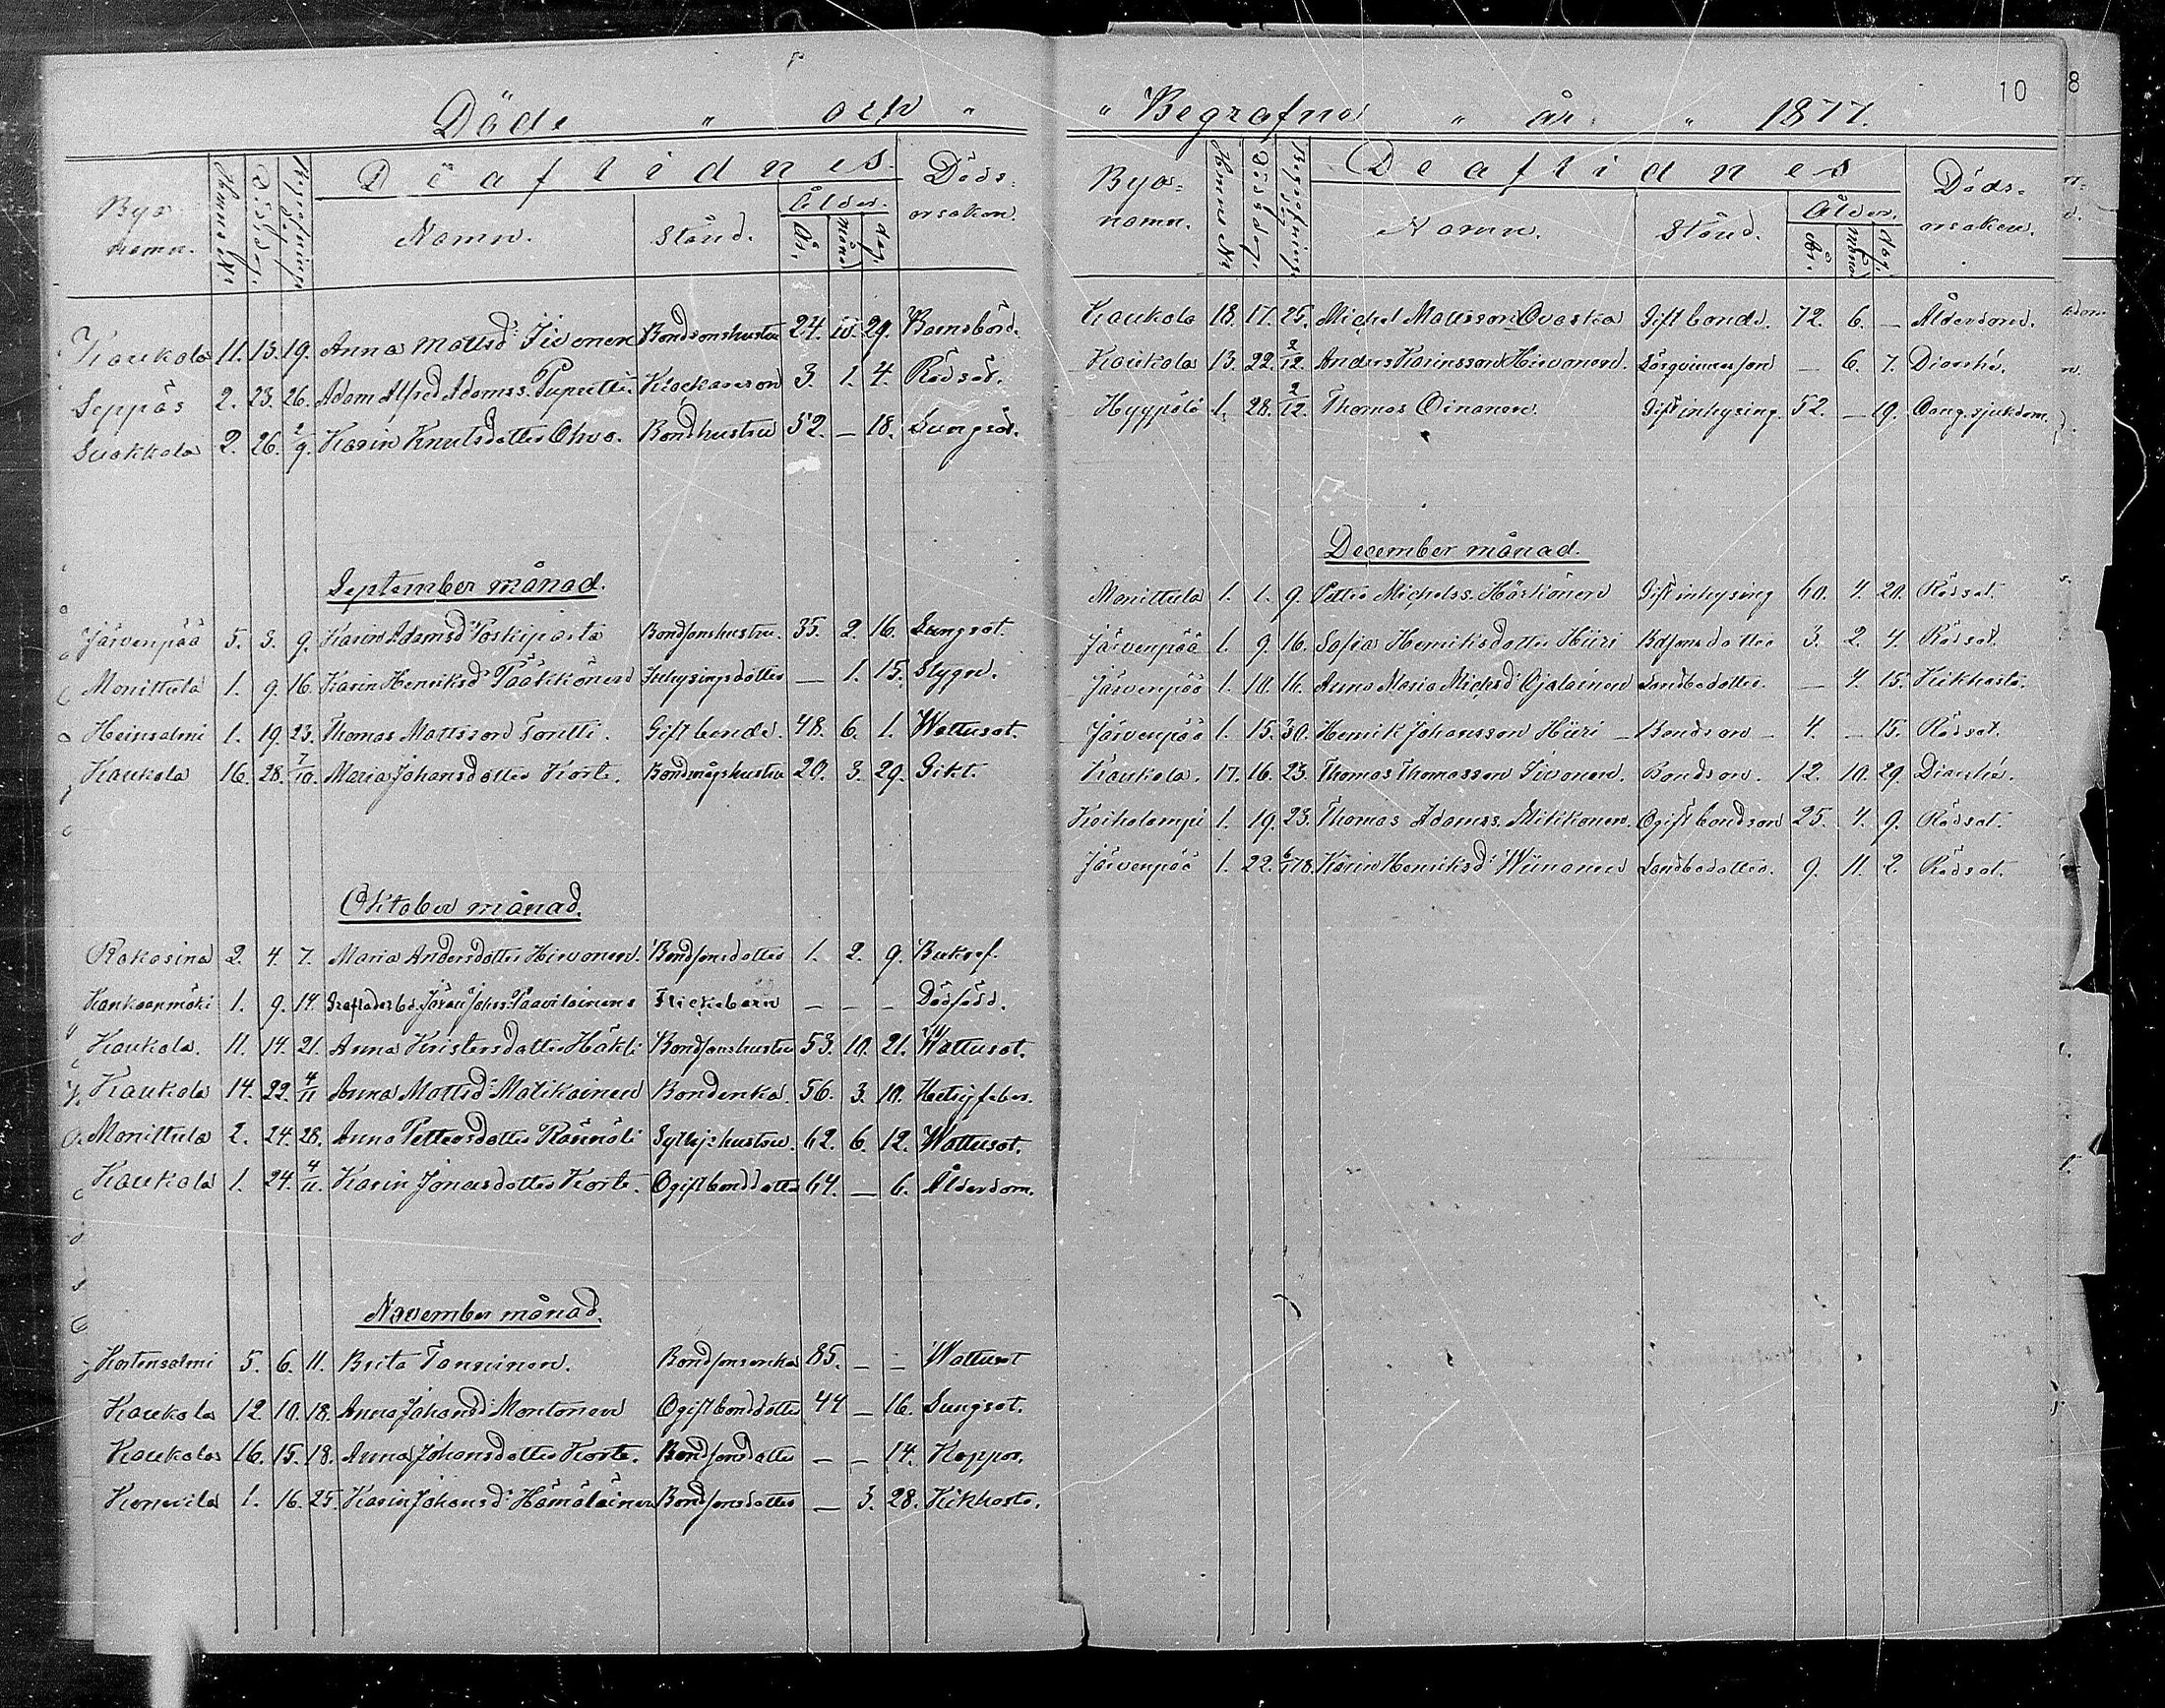 Döde " och "
De aflidnes.
Byanamn. Hemms No Dödsdag. Begrafningsdag Namn. Stånd. Ålder. År. Månad dag. Dödsorsaken.
Kaukola 11. 13. 19. Anna Mattsd: Sivonen Bondsonshustru 24. 10. 29. Barnsbörd.
Seppäs 2. 23. 26. Adam Alfred Adamss. Puputti Klockareson 3. 1. 4. Rödsot.
Suokkola 2. 26. 2/9. Karin Knutsdotter Ohvo. Bondhustru 52. — 18. Lungsot.
September månad.
Järvenpää 5. 3. 9. Karin Adamsd: Poskiparta Bondsonshustru. 35. 2. 16. Lungsot.
Monittula 1. 9. 16. Karin Henriksd: Pääkkönen Inhysingsdotter — 1. 15. Slygn.
Heinsalmi 1. 19. 23. Thomas Mattsson Tontti. Gift bonde. 48. 6. 1. Wattusot.
Kaukola 16. 28. 7/10. Maria Johansdotter Korte. Bondmågshustru 20. 3. 29. Gikt.
Oktober månad.
Rakasina 2. 4. 7. Maria Andersdotter Hirvonen. Bondsonsdotter 1. 2. 9. Bukref.
Kankaanmäki 1. 9. 14. Jöran Johss. Paavilainens Flickebarn — — — Dödfödd.
Kaukola. 11. 14. 21. Anna Kristersdotter Häkli Bondsonshustru 53. 10. 21. Wattusot.
Kaukola 14. 22. 4/11 Anna Mattsd: Matikainen Bondenka. 56. 3. 10. Hetsigfeber.
Monittula 2. 24. 28. Anna Pettersdotter Rännäli Sytnj:hustru. 62. 6. 12. Wattusot.
Kaukola 1. 24. 4/11. Karin Jonasdotter Korte. Ogift bonddotter 64. — 6. Ålderdom.
November månad.
Kortensalmi 5. 6. 11. Brita Tanninen. Bondsonsenka 85. — — Wattusot
Kaukola 12. 10. 18. Anna Johansd: Montonen Ogift bonddotter 44 — 16. Lungsot.
Kaukola 16. 15. 18. Anna Johansdotter Korte. Bondsonsdotter — — 14. Koppor.
Konnila 1. 16. 25. Karin Johansd: Hämäläinen Bondsonsdotter — 3. 28. Kikhosta.
10
8
" Begrafne " år " 1877.
De aflidnes
Byanamn. Hemms No Dödsdag. Begrafningsdag Namn. Stånd. Ålder. År. Månad dag. Dödsorsaken.
Kaukola 18. 17. 25. Michel Mattsson Ovaska Gift bonde. 72. 6. — Ålderdom.
Kaukola 13. 22. 2/12. Anders Karinsson Hirvonen. Lösqvinnason — 6. 7. Diarrhé.
Hyypölä 1. 28. 2/12. Thomas Oinonen. Gift inhysing. 52. — 19. Oang. sjukdom.
December månad.
Monittula 1. 1. 9. Petter Michelss. Härkönen Gift inhysing 60. 4. 20. Rödsot.
Järvenpää 1. 9. 16. Sofia Henriksdotter Hiiri Bdsonsdotter 3. 2. 4. Rödsot.
Järvenpää 1. 10. 16. Anna Maria Michsd: Ojalainen Landbodotter. — 4. 15. Kikhosta.
Järvenpää 1. 15. 30. Henrik Johansson Hiiri — Bondson — 4. — 15. Rödsot.
Kaukola. 17. 16. 23. Thomas Thomasson Sivonen. Bondson. 12. 10. 29. Diarrhé.
Koiholampi 1. 19. 23. Thomas Adamss. Mikkonen. Ogift bondson 25. 4. 9. Rödsot.
Järvenpää 1. 22. 6/1 78. Karin Henriksd: Wiinanen Landbodotter. 9. 11. 2. Rödsot.